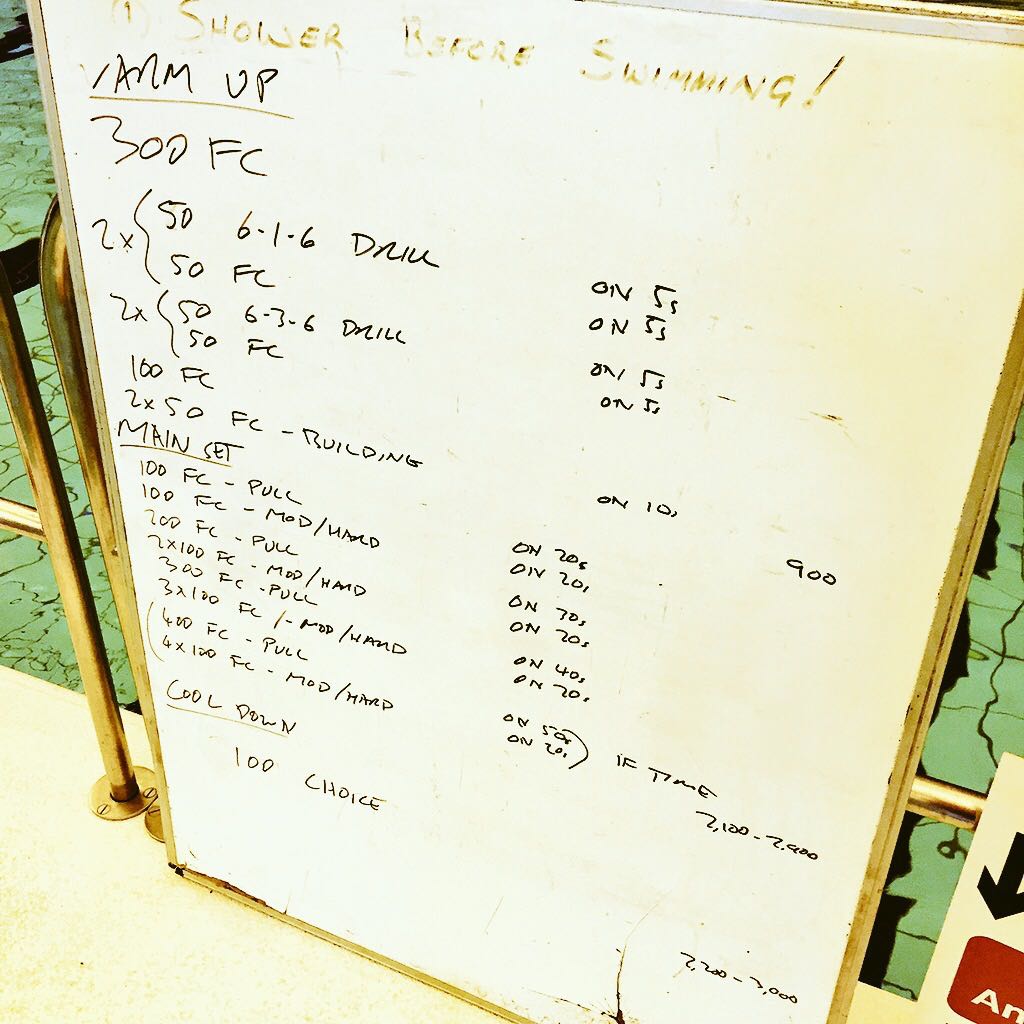 (1) SHOWER BEFORE SWIMMING!
WARM UP
300 FC
2x { 50 6-1-6 DRILL ON 5s
50 FC ON 5s
2x { 50 6-3-6 DRILL ON 5s
50 FC ON 5s
100 FC
2x50 FC - BUILDING ON 10s
900
MAIN SET
100 FC - PULL ON 20s
100 FC - MOD/HARD ON 20s
200 FC - PULL ON 30s
2x100 FC - MOD/HARD ON 20s
300 FC - PULL ON 40s
3x100 FC - MOD/HARD ON 20s
(400 FC - PULL ON 50s
4x100 FC - MOD/HARD ON 20s) IF TIME
2,100 - 2,900
COOL DOWN
100 CHOICE
2,200 - 3,000
An